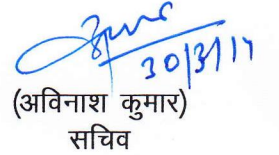 30/3/17
(अविनाश कुमार)
सचिव